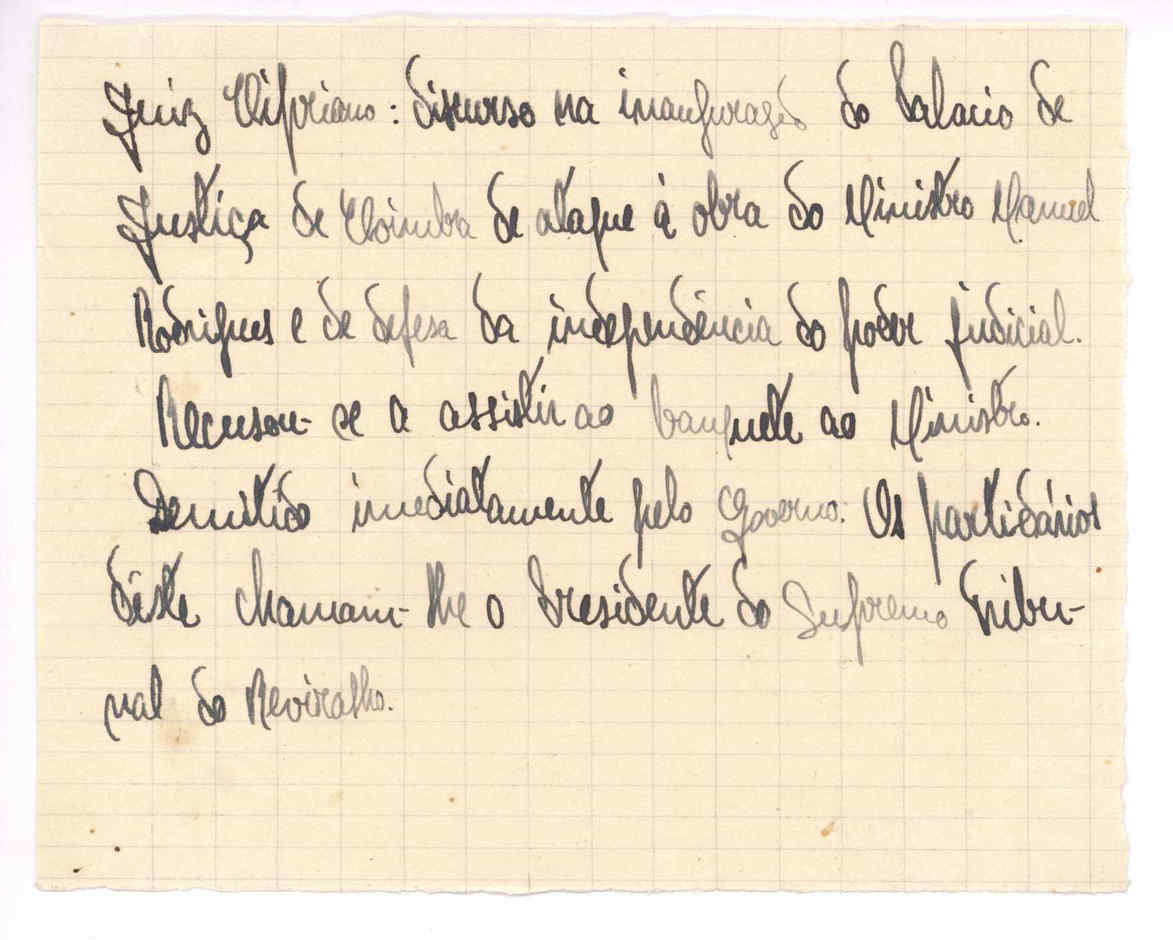 Juiz Cipriano: discurso na inauguração do Palacio de
Justiça de Coimbra de ataque à obra do Ministro Manuel
Rodrigues e de defesa da independência do poder judicial.
Recusou-se a assistir ao banquete ao Ministro.
Demitido imediatamente pelo Governo. Os partidários
dêste chamam-lhe o Presidente do Supremo Tribu-
nal do Reviralho.